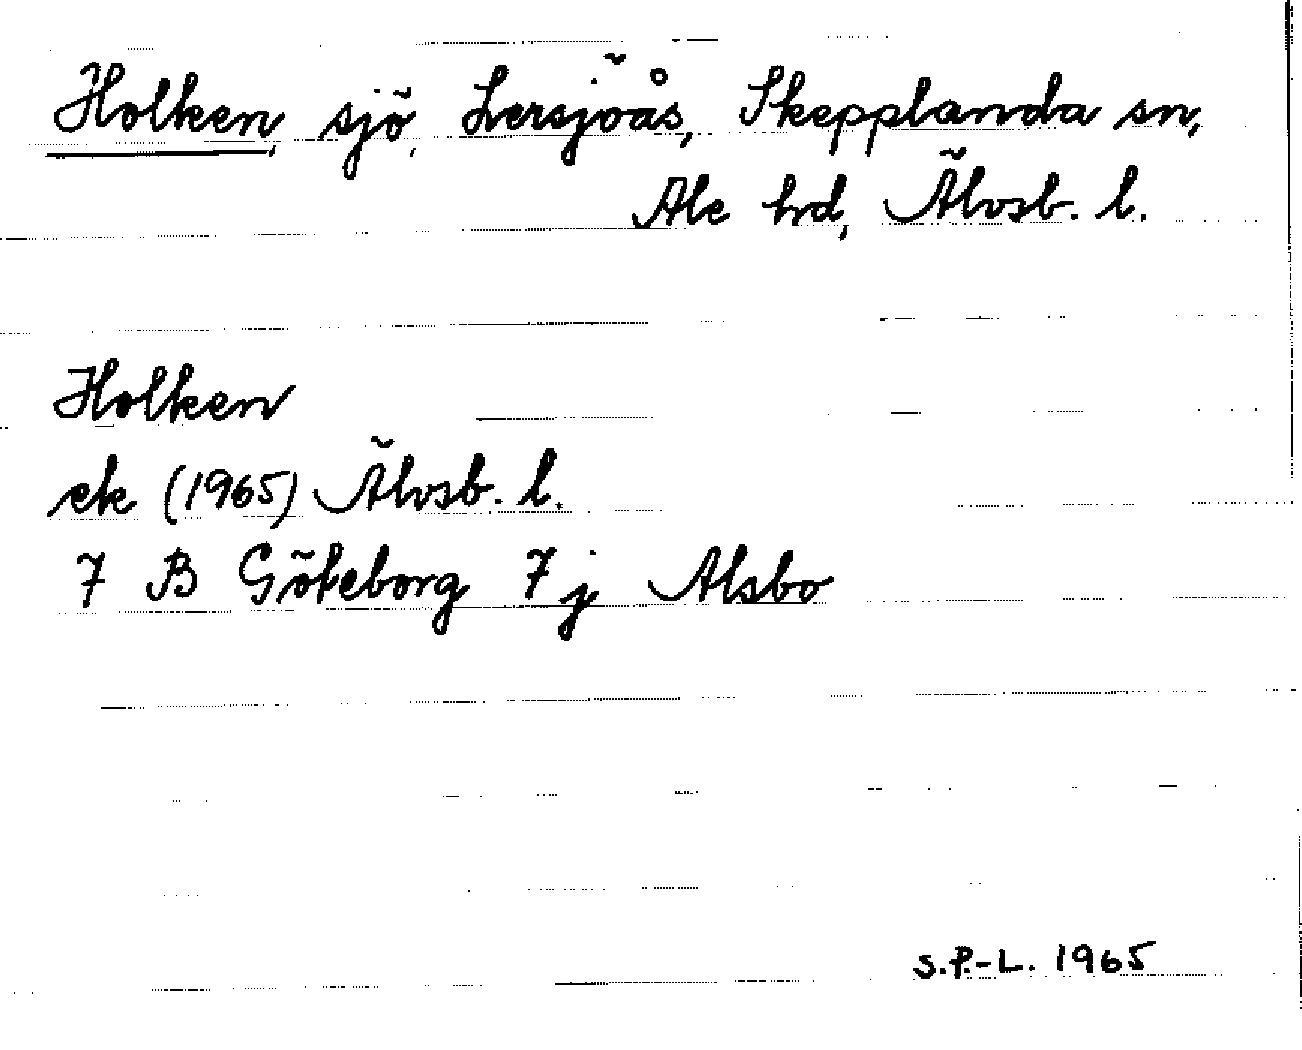 Holken, sjö, Lersjöås, Skepplanda sn,
Ale hd, Älvsb. l.
Holken
ek (1965) Älvsb. l.
7 B Göteborg 7 j Alsbo
S.P.-L. 1965